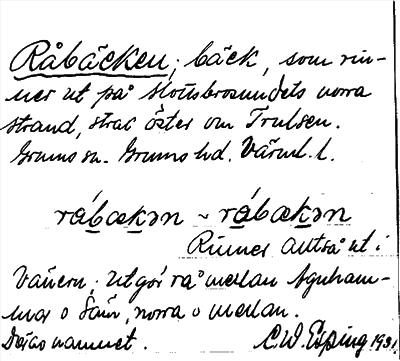 Råbäcken, bäck, som rin-
ner ut på Slottsbrosundets norra
strand, strax öster om Trulsen.
Grums sn. Grums hd. Värml. l.
rábækən ~ rábækən
Rinner alltså ut i
Vänern. Utgör rå mellan
mar o norra o mellan.
namnet. 1931.